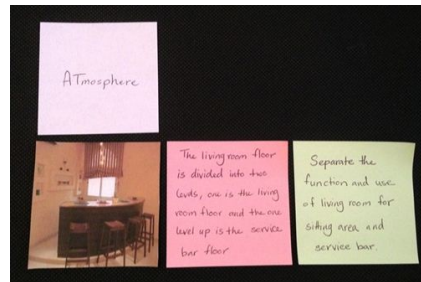 ATmosphere
The living room floor
is divided into two
levels, one is the living
room floor and the one
level up is the service
bar floor
Separate the
function and use
of living room for
sitting area and
service bar.